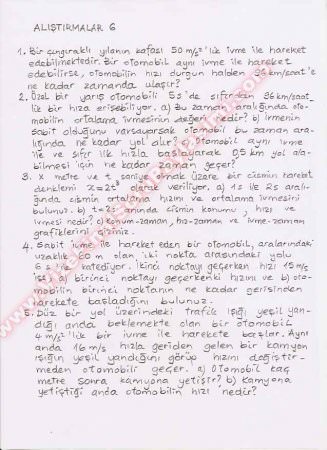 ALIŞTIRMALAR 6
1. Bir çıngıraklı yılanın kafası 50 m/s² lik ivme ile hareket
edebilmektedir. Bir otomobil aynı ivme ile hareket
edebilirse, otomobilin hızı durgun halden 36 km/saat'e
ne kadar zamanda ulaşır?
2. Özel bir yarış otomobili 5s'de sıfırdan 36km/saat_
lik bir hıza erişebiliyor. a) Bu zaman aralığında oto-
mobilin ortalama ivmesinin değeri nedir? b) İvmenin
sabit olduğunu varsayarsak otomobil bu zaman ara-
lığında ne kadar yol alır? Otomobil aynı ivme
ile ve sıfır ilk hızla başlayarak 0,5 km yol ala-
bilmesi için ne kadar zaman geçer?
3. x metre ve t saniye olmak üzere bir cismin hareket
denklemi olarak veriliyor. a) 1s ile 2s aralı-
ğında cismin ortalama hızını ve ortalama ivmesini
bulunuz. b) anında cismin konumu, hızı ve
ivmesi nedir? c) Konum-zaman, hız-zaman ve ivme-zaman
grafiklerini çiziniz.
4. Sabit ivme ile hareket eden bir otomobil, aralarındaki
uzaklık 60 m olan iki nokta arasındaki yolu
6 s de katediyor. İkinci noktayı geçerken hızı 15 m/s
ise a) birinci noktayı geçerkenki hızını ve b) oto-
mobilin birinci noktanın ne kadar gerisinden
harekete başladığını bulunuz.
5. Düz bir yol üzerindeki trafik ışığı yeşil yan-
dığı anda beklemekte olan bir otomobil
4 m/s² lik bir ivme ile harekete başlar. Aynı
anda 16 m/s hızla geriden gelen bir kamyon
ışığın yeşil yandığını görüp hızını değiştir-
meden otomobili geçer. a) Otomobil kaç
metre sonra kamyona yetişir? b) Kamyona
yetiştiği anda otomobilin hızı nedir?